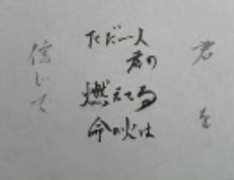 君を
ただ一人
君の
燃えてる
の火は
信じて